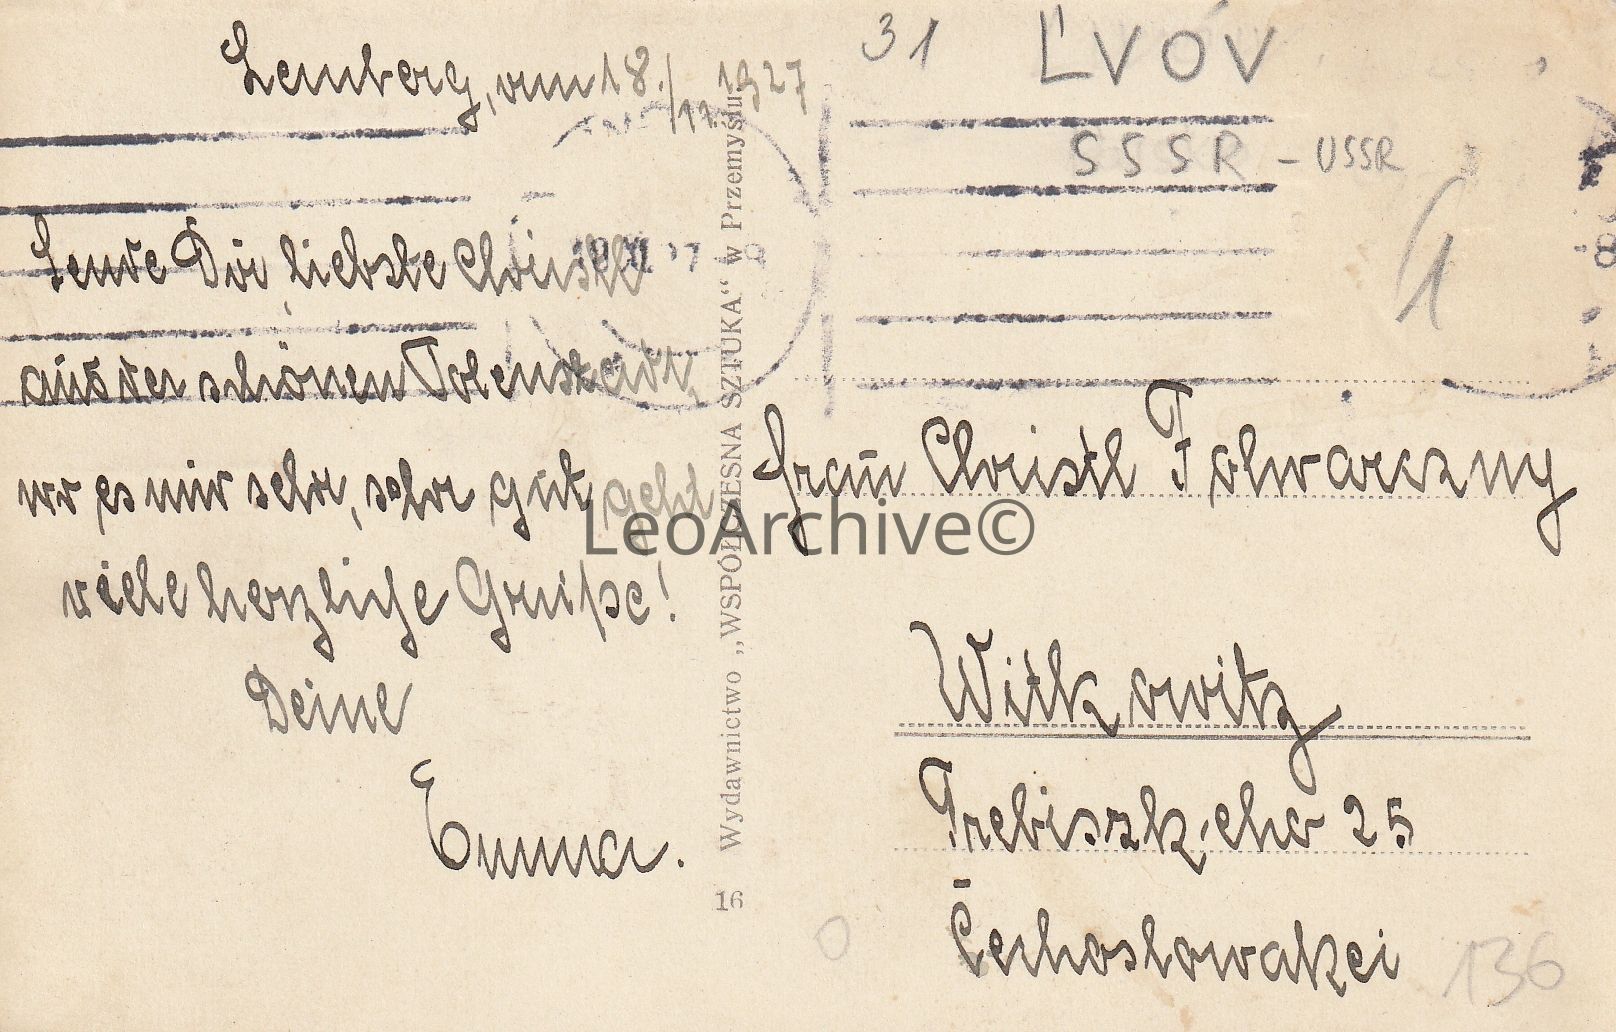 Lemberg, am 18./11. 1927
Sende Dir, liebste Christl
aus der schönen Polenstadt,
wo es mir sehr, sehr gut geht
viele herzliche Grüße!
Deine
Emma.
Wydawnictwo „WSPÓŁCZESNA SZTUKA“ w Przemyślu.
16
31 ĽVÓV
SSSR - USSR
1
Frau Christl Folwarczny
Witkowitz
Trebiszk-eho 25
Čechoslowakei
136
LeoArchive©